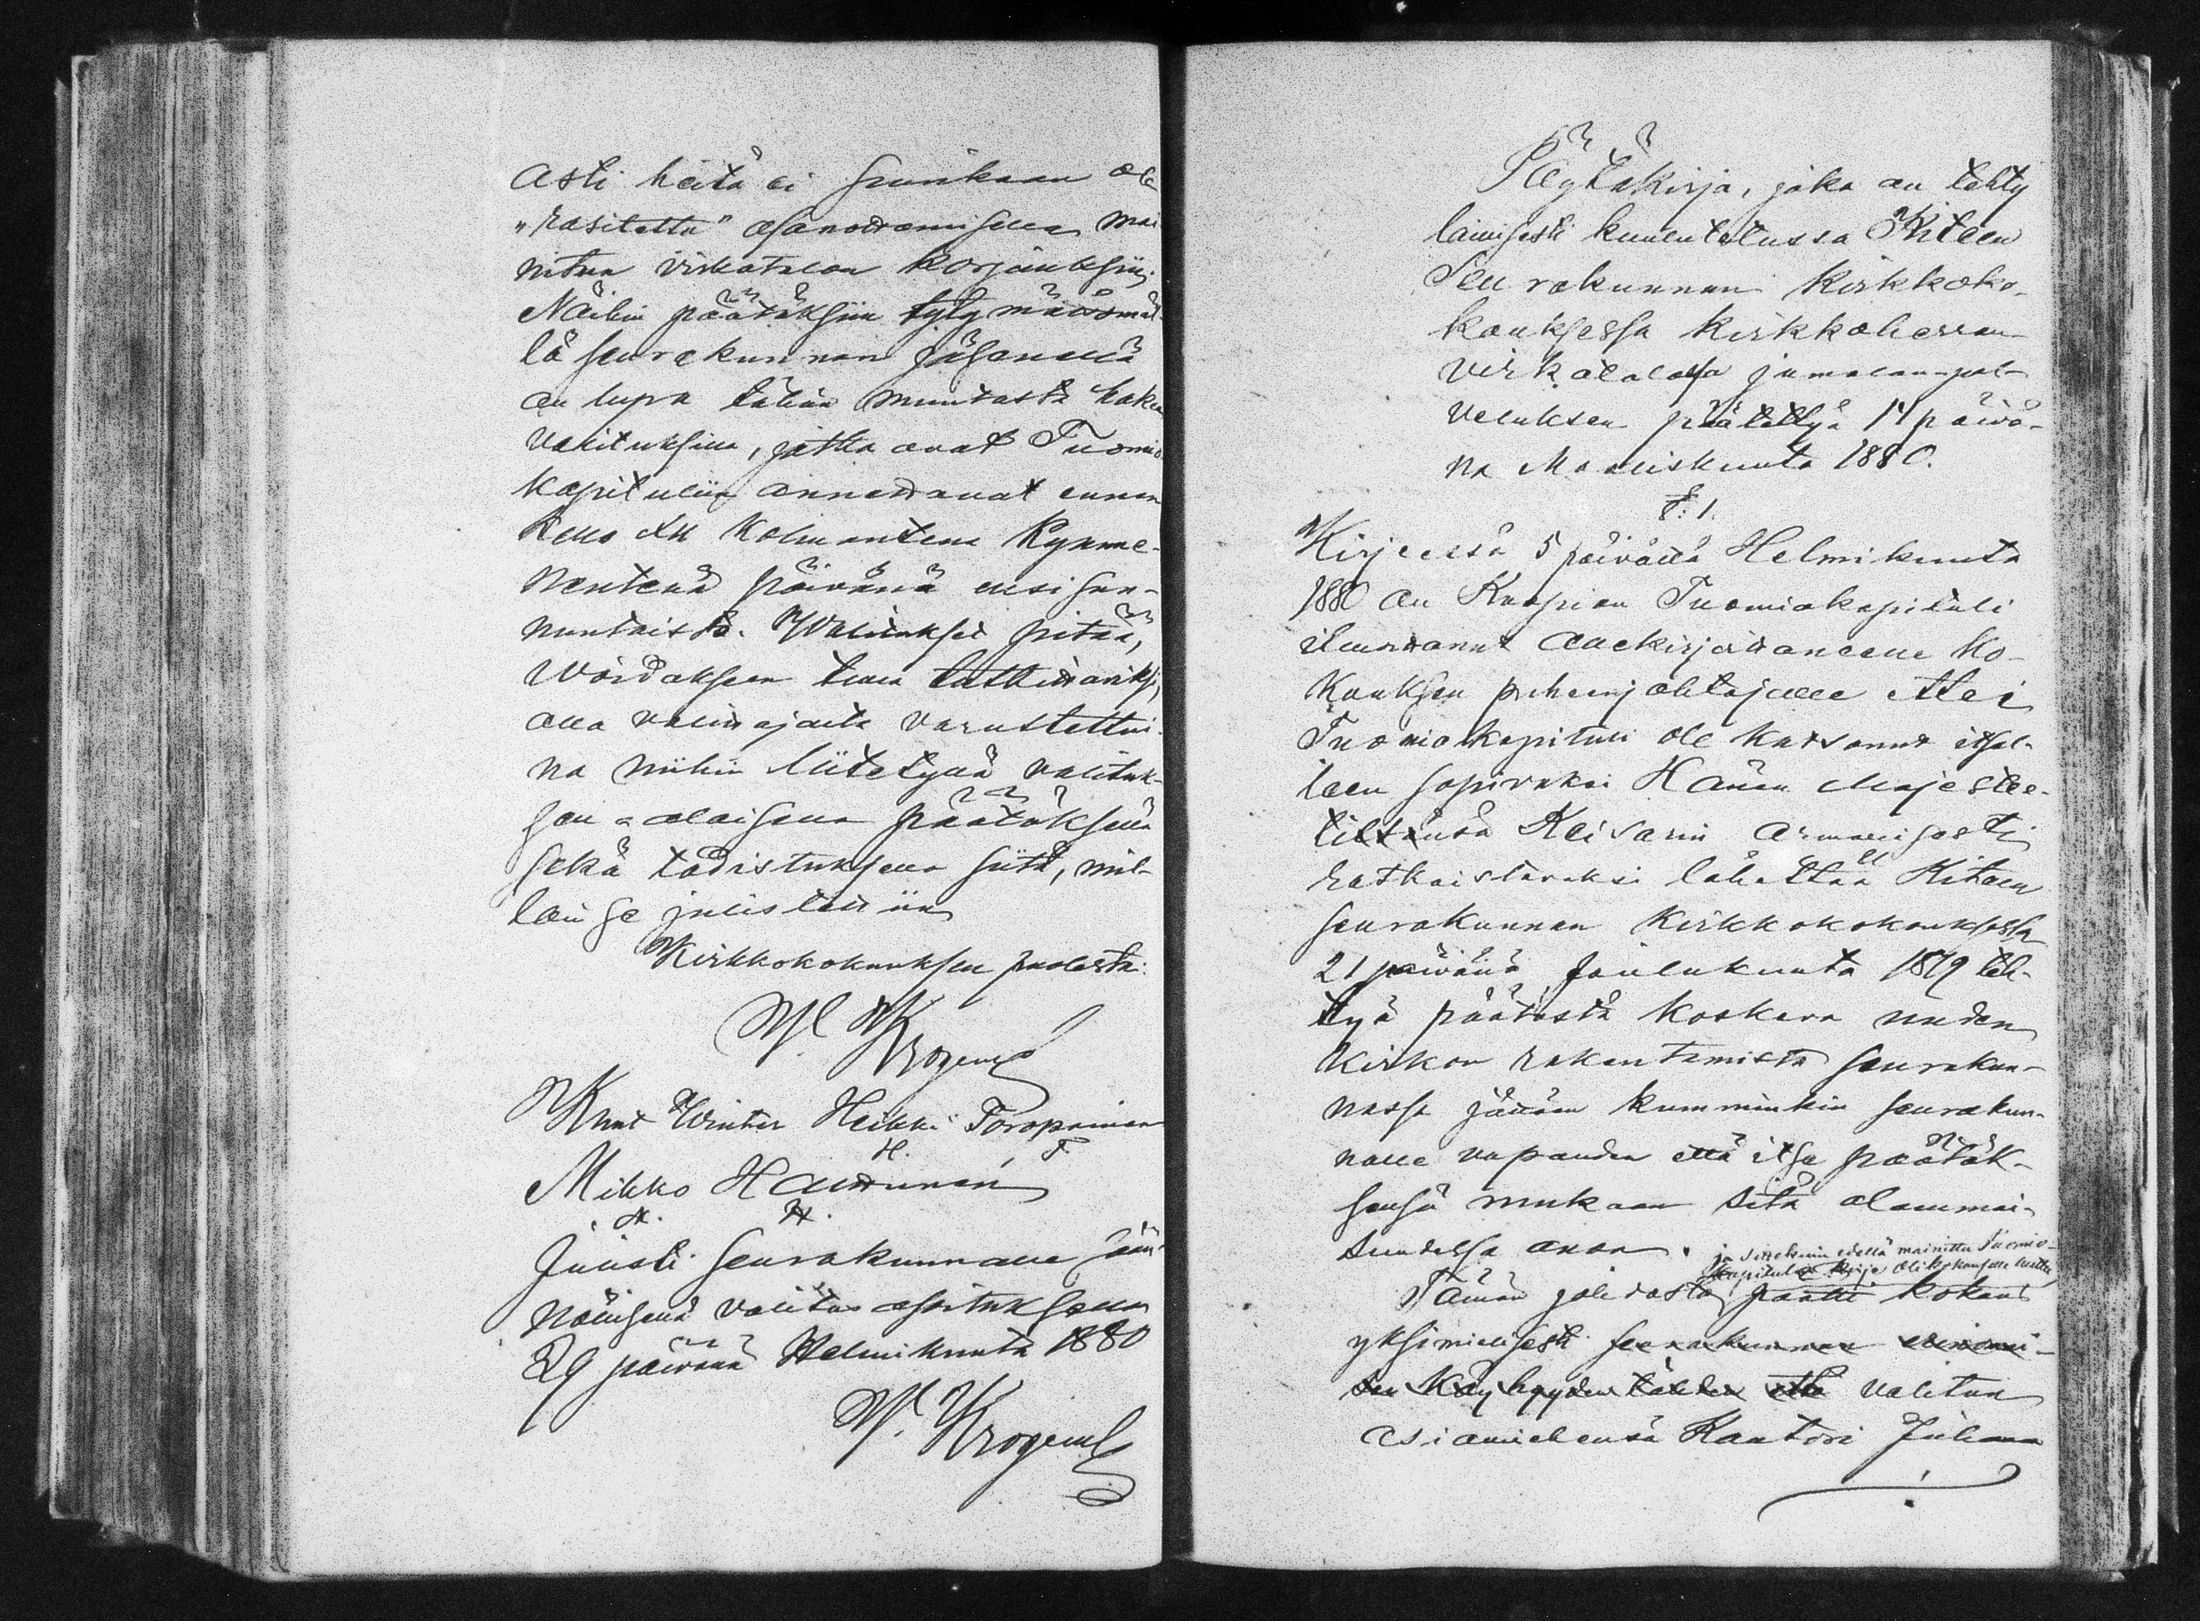 asti heitä ei suinkaan ole
„rasitettu" osanottamisella mai
nitun virkatalon korjauksiin.
Näihin päätöksiin tytymättömäl-
lä seurakunnan jäsenellä
on lupa tähän muutosta hakea
valituksilla, jotka ovat Tuomio
kapituliin annettavat ennen
kello XII kolmantena kymme-
nentenä päivänä ensi
nuntaista. Walitukset pitää,
woidakseen tulla tutkittaviksi,
olla valittajaita varustettui-
na niihin liitetyllä valituk-
sen-alaisella päätöksellä
sekä todistuksella siitä, mil-
loin se julistettiin
Kirkkokokouksen puolesta:
W. Krogerus
Knut Winter Heikki Toropainen
H. T
Mikko Hallunen
M. H.
Julisti seurakunnalle sään-
nöllisellä valitus osoituksella
29 päivänä Helmikuuta 1880
W. Krogerus
Pöytäkirja, joka on tehty
laillisesti kuulutetussa Kiteen
Seurakunnan kirkkoko-
kouksessa kirkkoherran
virkatalossa jumalanpal-
veluksen päätettyä 14 päivä-
nä Maaliskuuta 1880.
§: 1.
Kirjeessä 5 päivältä Helmikuuta
1880 on Kuopion Tuomiokapituli
ilmoittanut allekirjoittaneelle ko-
kouksen puheenjohtajalle ettei
Tuomiokapituli ole katsonut itsel-
leen sopivaksi Hänen Majestee-
tillensä Keisarin armollisesti
ratkaistavaksi lähettää Kiteen
seurakunnan kirkkokokouksessa
21 päivänä Joulukuuta 1879 teh-
tyä päätöstä koskeva uuden
kirkon rakentamista seurakun-
nassa jättäen kumminkin seurakun-
nalle vapauden että itse päätök-
sensä mukaan sitä alammai-
suudessa anoa.
ja sittekuin edellä mainittu Tuomio-
kapitulin kirje oli kokoukselle luettu,
Tämän johdosta päätti kokous
yksimielisesti seurakunnan
den köyhyyden tähden että valitun
asiamiehensä Kanttori Juhana